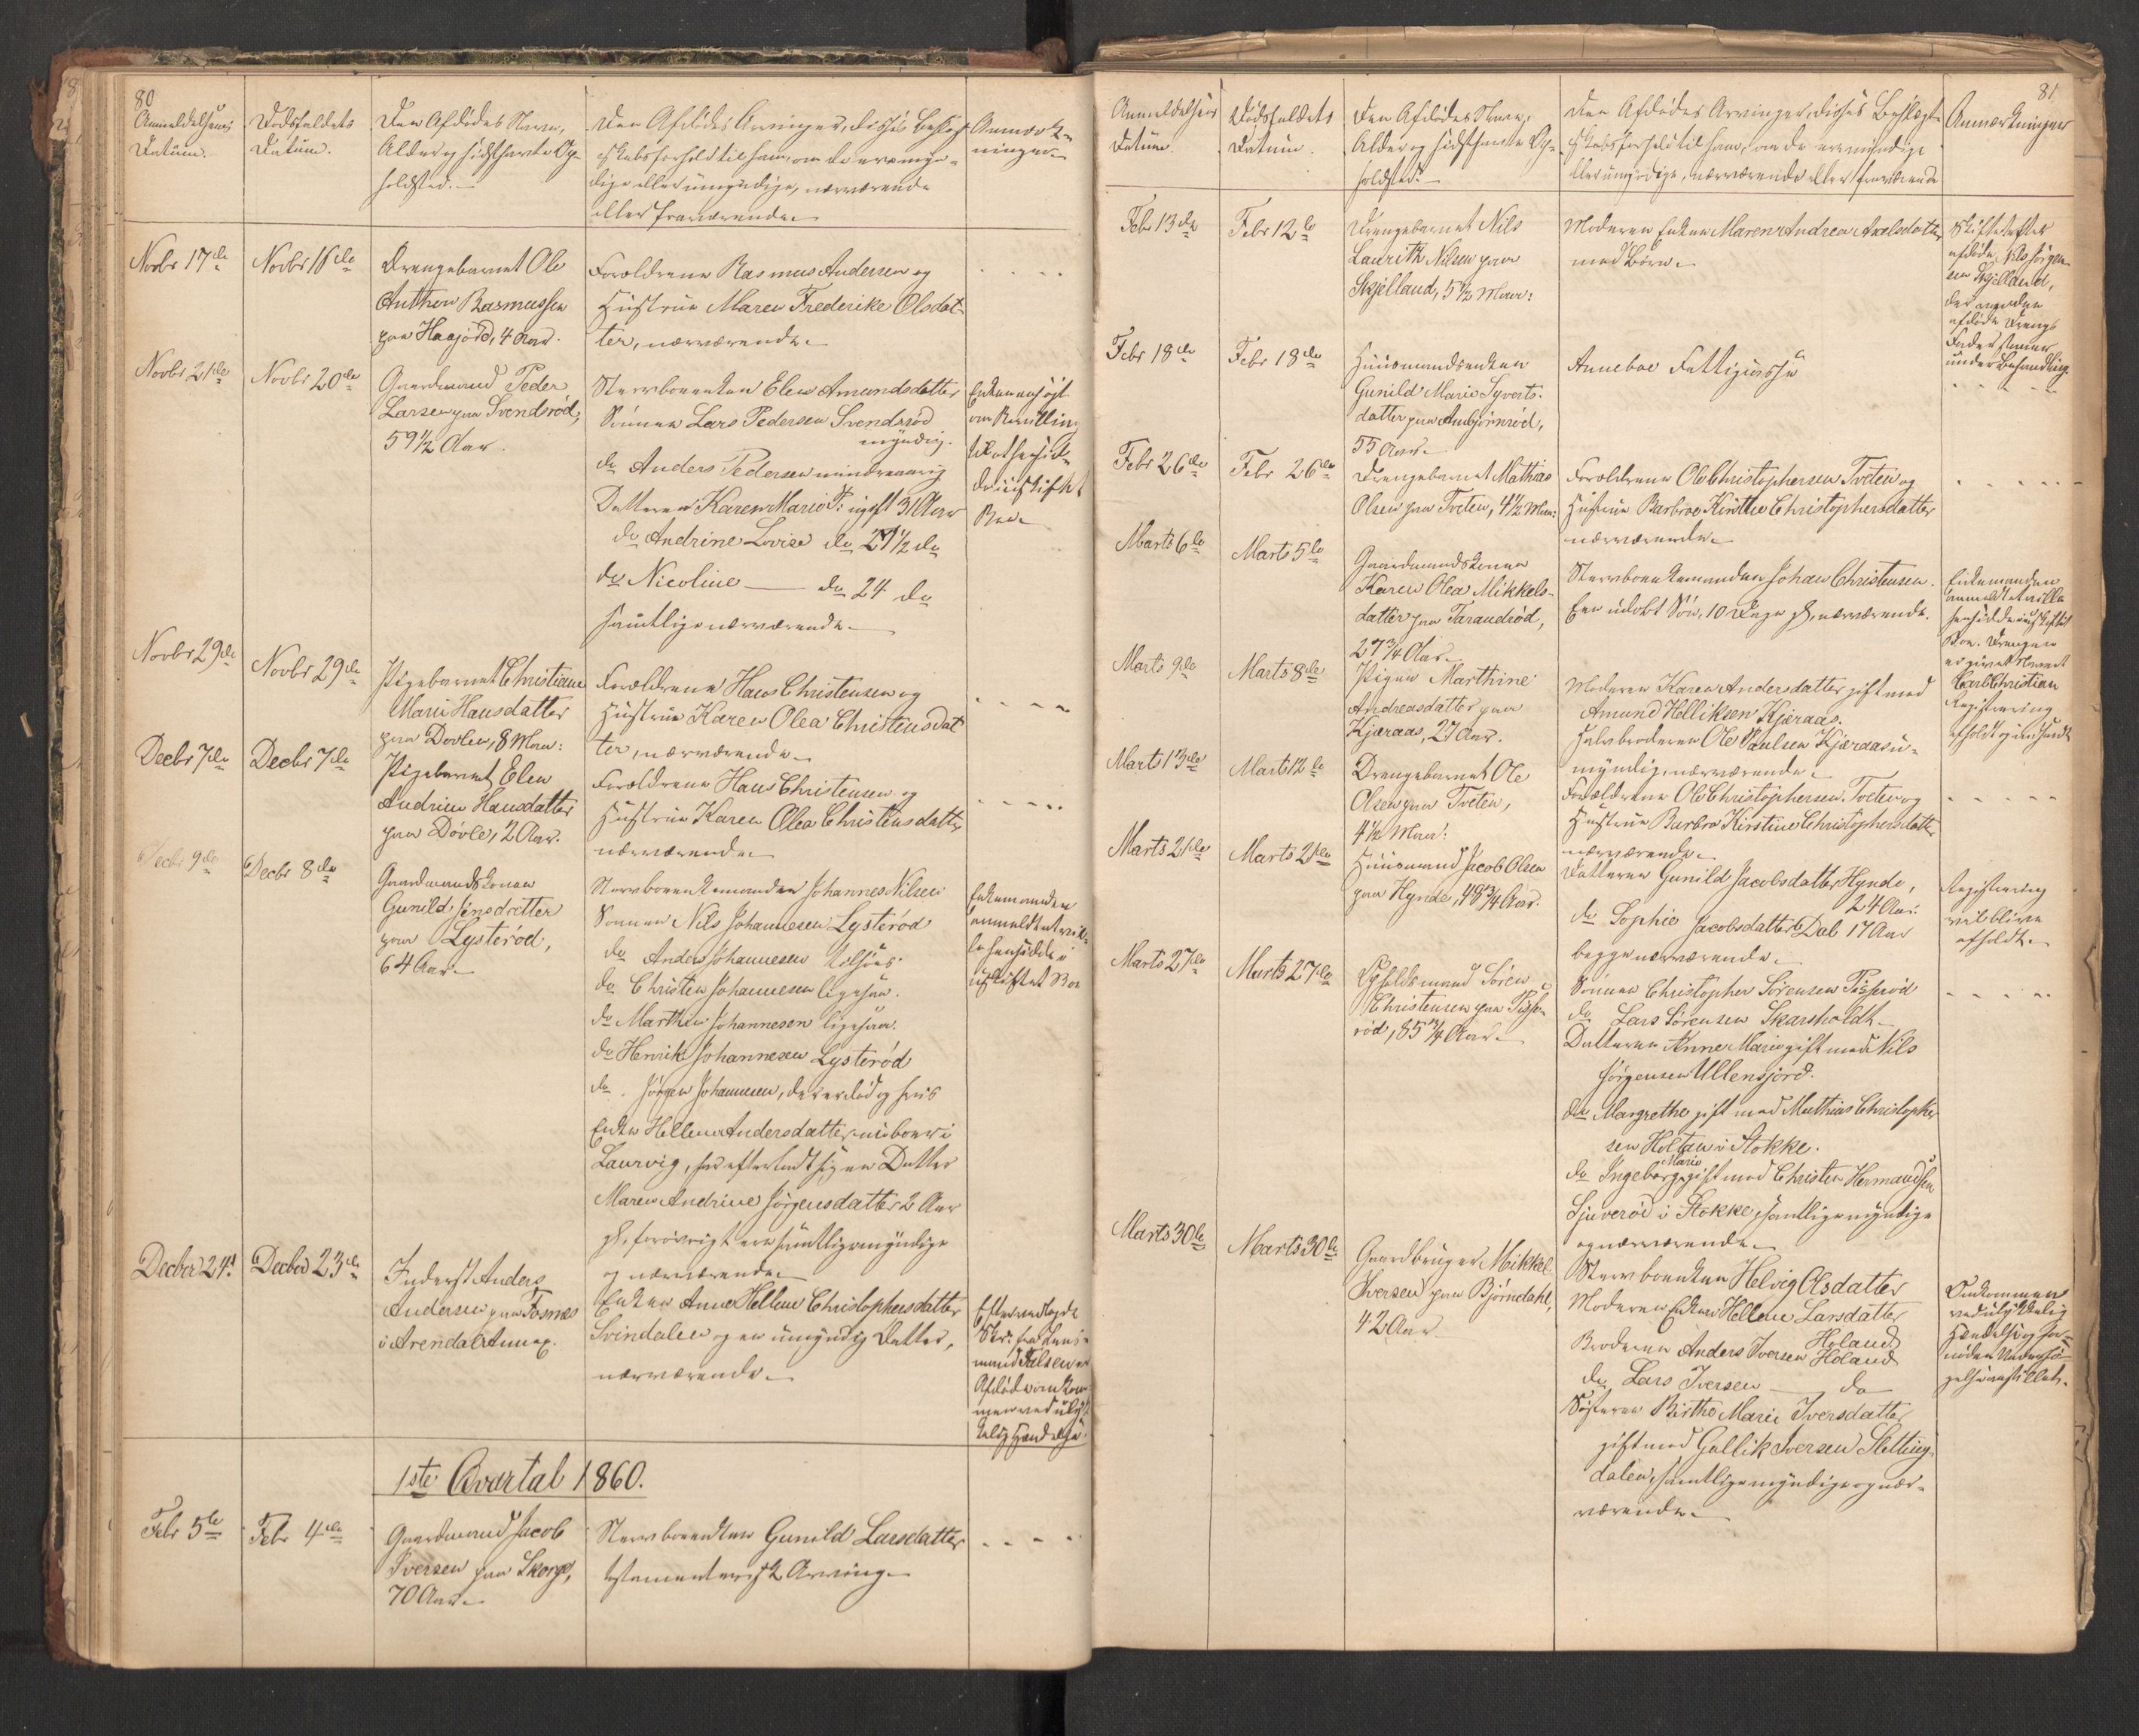 80
Anmeldelsens Datum.
Dødsfaldets Datum.
Den Afdødes Navn, Alder og sidsthavte Opholdsted.
Den Afdødes Arvinger, disses Beslægtskabsforhold til ham, om de ere myndige eller umyndige, nærværende eller fraværende
Anmærkninger
Novbr 17de
Novbr 16de
Drengebarnet Ole
Anthon Rasmussen
paa Haagjord, 4 Aar.
Forældrene Rasmus Andersen og
Hustrue Maren Frederike Olsdat-
ter, nærværende.
Novbr 21de
Novbr 20de
Gaardmand Peder
Larsen paa Svendsrød,
59 1/2 Aar.
Stervboenken Elen Amundsdatter
Sønnen Lars Pedersen Svendsrød
myndig.
do Anders Pedersen mindreaarig
Datteren Karen Marie P: ugift 31 Aar
do Andrine Lovise do 27 1/2 do
do Nicoline do 24 do
samtlige nærværende.
Enken ansøgt
om Bevilling
til at hensid-
de i uskiftet
Boe
Novbr 29de
Novbr 29de
Pigebarnet Christiane
Marie Hansdatter
paa Dovlen, 8 Mdr:
Forældrene Hans Christensen og
Hustrue Karen Olea Christensdat
ter, nærværende.
Decbr 7de
Decbr 7de
Pigebarnet Elen
Andrine Hansdatter
paa Dovle, 2 Aar.
Forældrene Hans Christensen og
Hustrue Karen Olea Christensdatter
nærværende
Decbr 9de
Decbr 8de
Gaardmandskonen
Gunild Jensdatter
paa Lysterød,
64 Aar.
Stervboenkemanden Johannes Nilsen
Sønnen Nils Johannesen Lysterød
do Anders Johannesen tilsøes.
do Christen Johannesen ligesaa.
do Marthin Johannesen ligesaa.
do Henrik Johannesen Lysterød
do Jørgen Johannesen, der er død og hvis
Enke Hellene Andersdatter, nu boer i
Laurvig, har efterladt sig en Datter
Maren Andrine Jørgensdatter 2 Aar
gl., forøvrigt ere samtlige myndige
og nærværende
Enkemanden
anmeldt at vil-
le hensidde i
uskiftet Boe
Decber 24.
Decber 23de
Inderst Anders
Andersen paa Fosnes
i Arendal Annex.
Enken Anne Hellene Christophersdatter
Svindalen og en umyndig Datter,
nærværende.
mand Falsen er
Afdøde omkom-
men ved ulyk
kelig Hændelse.
1ste Qvartal 1860.
Febr 5te
Febr 4de
Gaardmand Jacob
Iversen paa Skorge,
70 Aar.
Stervboenken Gunild Larsdatter
testamentarisk Arving.
81
Anmeldelsens Datum.
Dødsfaldets Datum.
Den Afdødes Navn, Alder og sidsthavte Opholdsted.
Den Afdødes Arvinger, disses Beslægt-
skabsforhold til ham, om de ere myndige
eller umyndige, nærværende eller fraværende
Anmærkninger
Febr 13de
Febr 12te
Drengebarnet Nils
Laurith Nilsen paa
Skjelland, 5 1/2 Mdr:
Moderen Enken Maren Andrea Axelsdatter
med Børn.
Skiftet efter
afdøde Nils Jørgen-
sen Skjelland,
afdøde Drengs
Fader
under Behandling.
Febr 18de
Febr 18de
Huusmandsenken
Gunild Marie Syverts-
datter paa Anbjørnrød,
55 Aar.
Anneboe Fattigcasse
Febr 26de
Febr 26de
Drengebarnet Mathias
Olsen paa Tveten, 4 1/2 Mdr:
Forældrene Ole Christophersen Tveten og
Hustrue Barbroe Kirstine Christophersdatter
nærværende.
Marts 6te
Marts 5te
Gaardmandskonen
Karen Olea Mikkels-
datter paa Tarandrød,
27 3/4 Aar.
Stervboenkemanden Johan Christensen.
Een udøbt Søn, 10 Dage gl., nærværende.
Enkemanden
anmeldt at ville
hensidde i uskiftet
Boe. Drengen
er givet Navnet
Carl Christian
Marts 9de
Marts 8de
Pigen Marthine
Andreasdatter paa
Kjæraas, 27 Aar.
Moderen Karen Andersdatter gift med
Amund Helliksen Kjæraas.
Halvbroderen Ole Paulsen Kjæraas u-
myndig, nærværende.
Registrering
afholdt og indsendt
Marts 13de
Marts 12te
Drengebarnet Ole
Olsen paa Tveten,
4 1/2 Mdr:
Forældrene Ole Christophersen Tveten og
Hustrue Barbro Kirstine Christophersdatter
nærværende.
Marts 21de
Marts 21de
Huusmand Jacob Olsen
paa Hynde, 48 3/4 Aar.
Datteren Gunild Jacobsdatter Hynde,
24 Aar.
do Sophie Jacobsdatter Dal 17 Aar
begge nærværende.
Registrering
vil blive
afholdt.
Marts 27de
Marts 27de
Opholdsmand Søren
Christensen paa
rød, 85 3/4 Aar.
Sønnen Christopher Sørensen
do Lars Sørensen Skarsholdt
Datteren Anne Marie gift med Nils
Jørgensen Ullensjord.
do Margrethe gift med Mathias Christopher
sen Holtan i Stokke.
do Ingeborg Marie gift med Christen Hermandsen
Sjuverød i Stokke, samtlige myndige
og nærværende.
Marts 30te
Marts 30te
Gaardbruger Mikkel
Iversen paa Bjørndahl,
42 Aar.
Stervboenken Helvig Olsdatter
Moderen Enken Hellene Larsdatter
Holand
Broderen Anders Iversen Holand
do Lars Iversen do
Søsteren Birthe Marie Iversdatter
gift med Gullik Iversen Sletting-
dalen, samtlige myndige og nær-
værende.
Omkommen
ved ulykkelig
Hændelse og for-
nøden Undersø-
gelse anstillet.